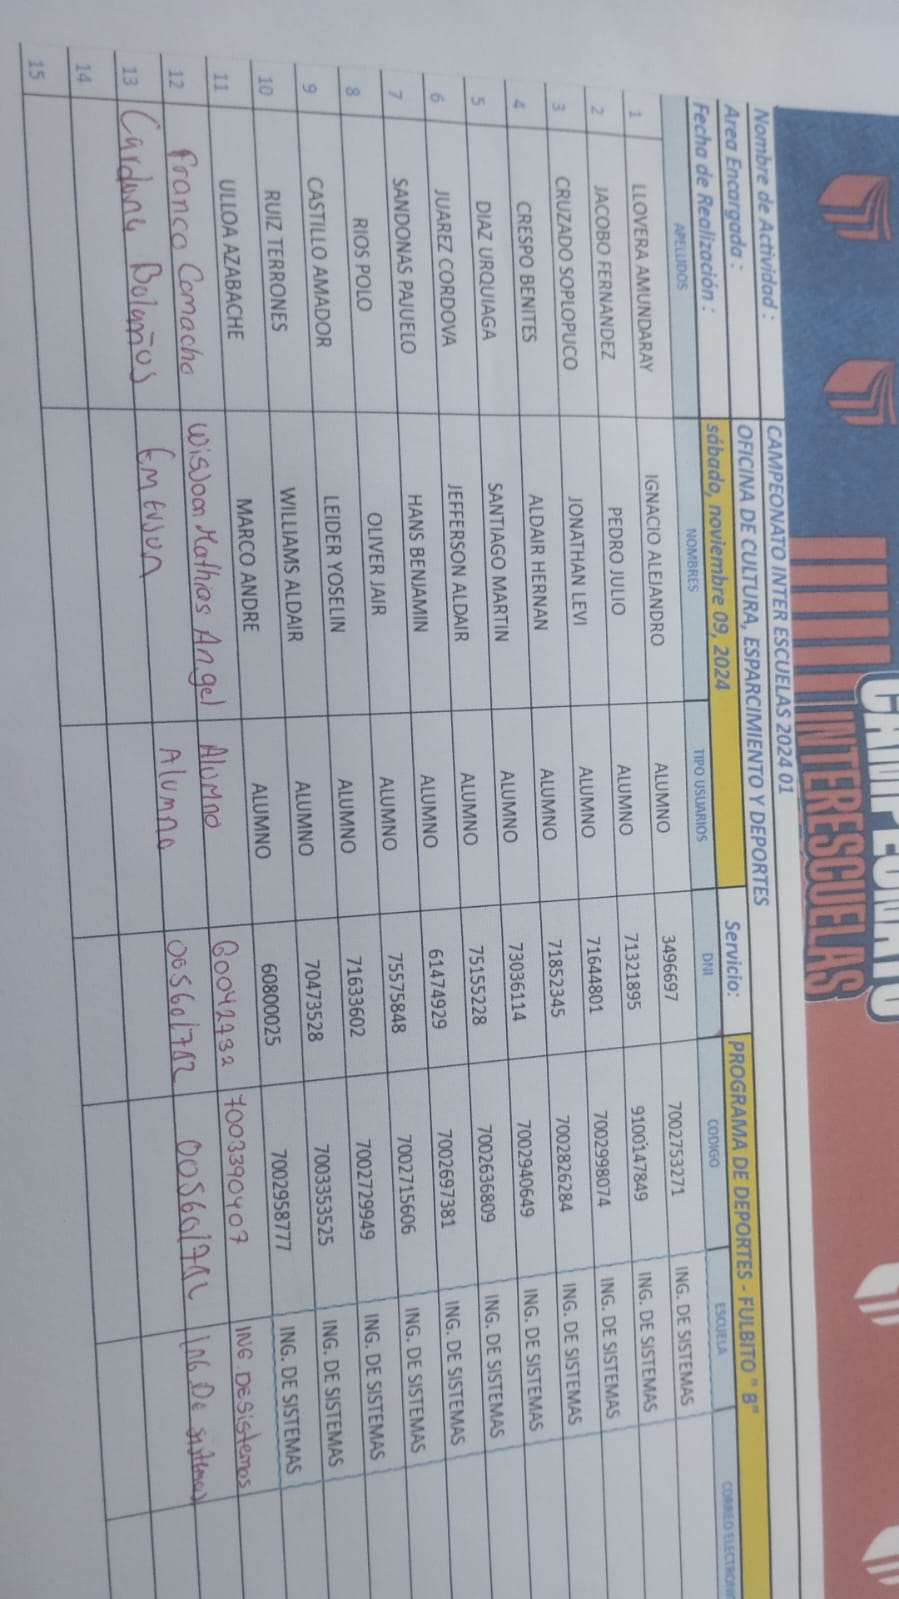 CAMPEONATO
INTERESCUELAS
Nombre de Actividad : CAMPEONATO INTER ESCUELAS 2024 01
Area Encargada : OFICINA DE CULTURA, ESPARCIMIENTO Y DEPORTES
Fecha de Realización : sábado, noviembre 09, 2024 Servicio: PROGRAMA DE DEPORTES - FULBITO " B"
APELLIDOS NOMBRES TIPO USUARIOS DNI CODIGO ESCUELA CORREO
1 LLOVERA AMUNDARAY IGNACIO ALEJANDRO ALUMNO 3496697 7002753271 ING. DE SISTEMAS
2 JACOBO FERNANDEZ PEDRO JULIO ALUMNO 71321895 9100147849 ING. DE SISTEMAS
3 CRUZADO SOPLOPUCO JONATHAN LEVI ALUMNO 71644801 7002998074 ING. DE SISTEMAS
4 CRESPO BENITES ALDAIR HERNAN ALUMNO 71852345 7002826284 ING. DE SISTEMAS
5 DIAZ URQUIAGA SANTIAGO MARTIN ALUMNO 73036114 7002940649 ING. DE SISTEMAS
6 JUAREZ CORDOVA JEFFERSON ALDAIR ALUMNO 75155228 7002636809 ING. DE SISTEMAS
7 SANDONAS PAJUELO HANS BENJAMIN ALUMNO 61474929 7002697381 ING. DE SISTEMAS
8 RIOS POLO OLIVER JAIR ALUMNO 75575848 7002715606 ING. DE SISTEMAS
9 CASTILLO AMADOR LEIDER YOSELIN ALUMNO 71633602 7002729949 ING. DE SISTEMAS
10 RUIZ TERRONES WILLIAMS ALDAIR ALUMNO 70473528 7003353525 ING. DE SISTEMAS
11 ULLOA AZABACHE MARCO ANDRE ALUMNO 60800025 7002958777 ING. DE SISTEMAS
12 Franco Camacho Mathias Angel Alumno 60042732 7003390407 ING. DE Sistemas
13 Cardona Bolaños Emerson Alumno Ing. De sistemas
14
15